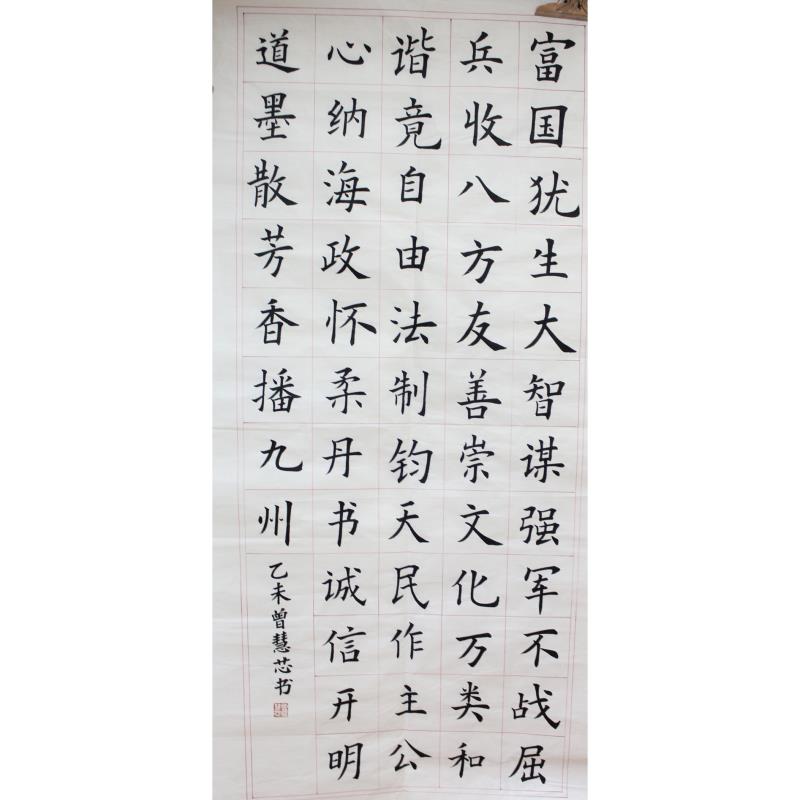 富国犹生大智谋强军不战屈
兵收八方友善崇文化万类和
谐竟自由法制钧天民作主公
心纳海政怀柔丹书诚信开明
道墨散芳香播九州
乙未曾慧芯书